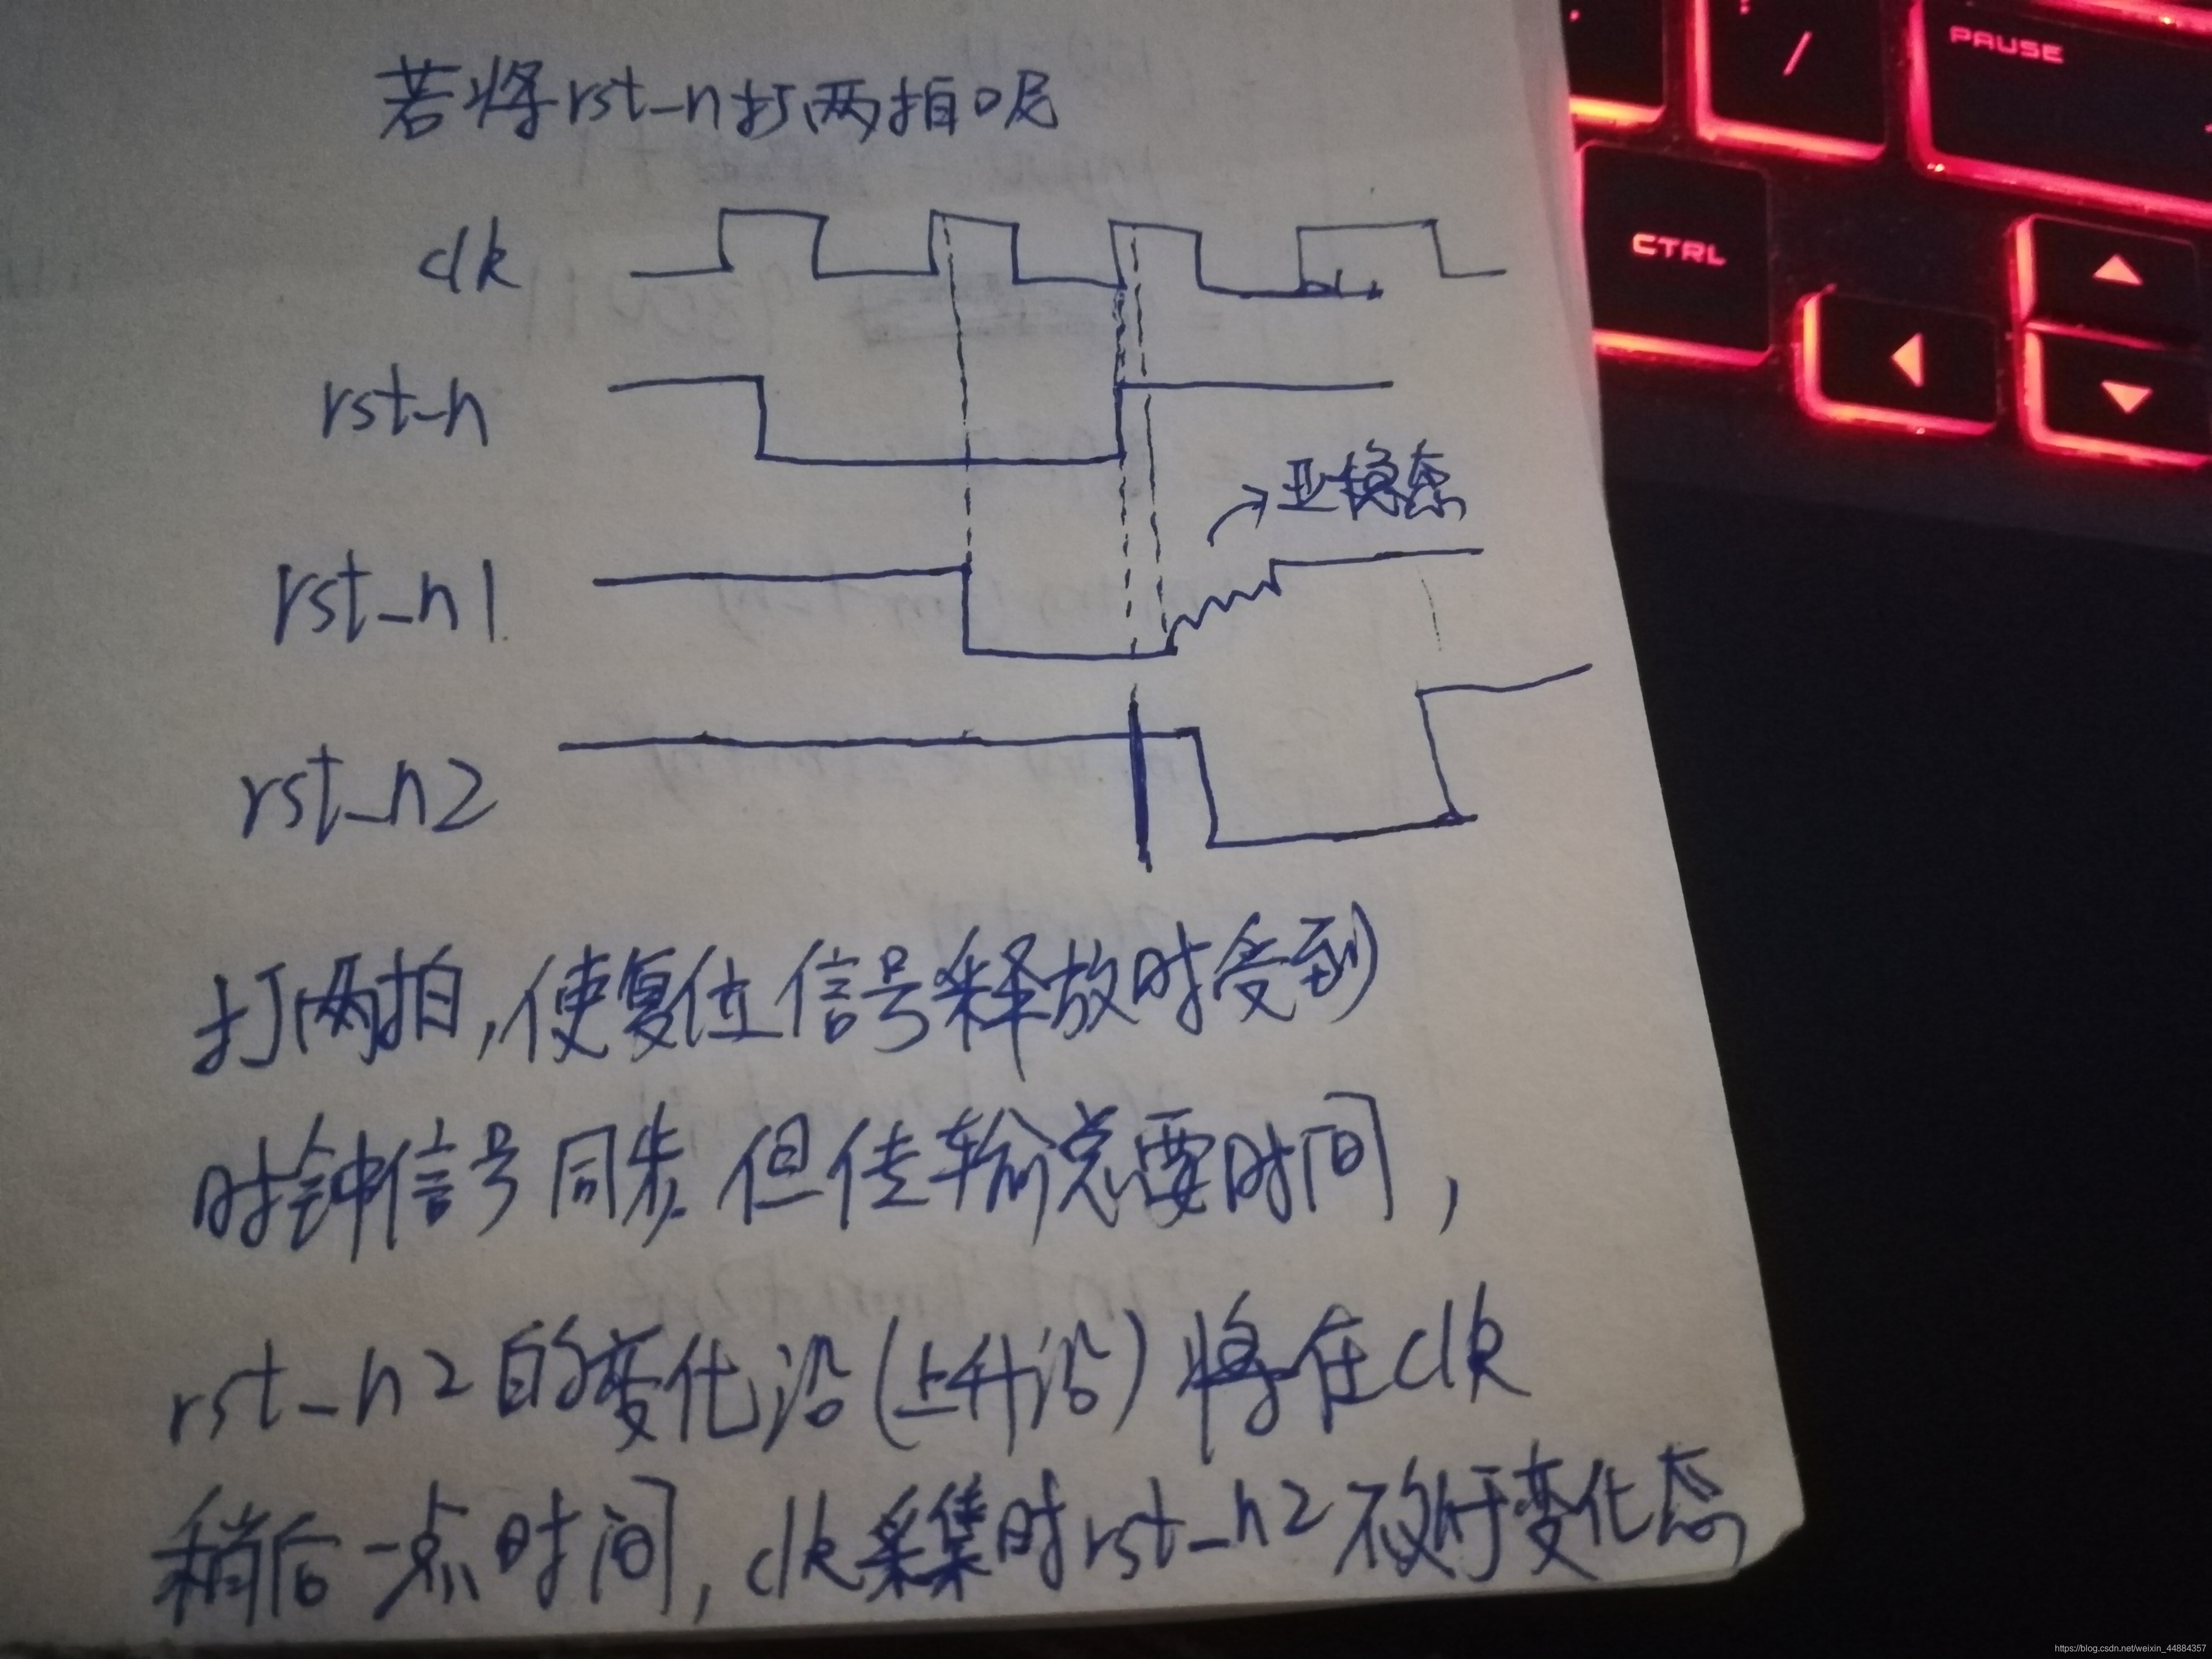 若将rst_n打两拍呢
PAUSE
/
CTRL
clk
rst_n
→亚稳态
rst_n1
rst_n2
打两拍,使复位信号释放时受到
时钟信号同步.但传输总要时间,
rst_n2的变化沿(上升沿)将在clk
稍后一点时间,clk采集时rst_n2不处于变化态
https://blog.csdn.net/weixin_44884357